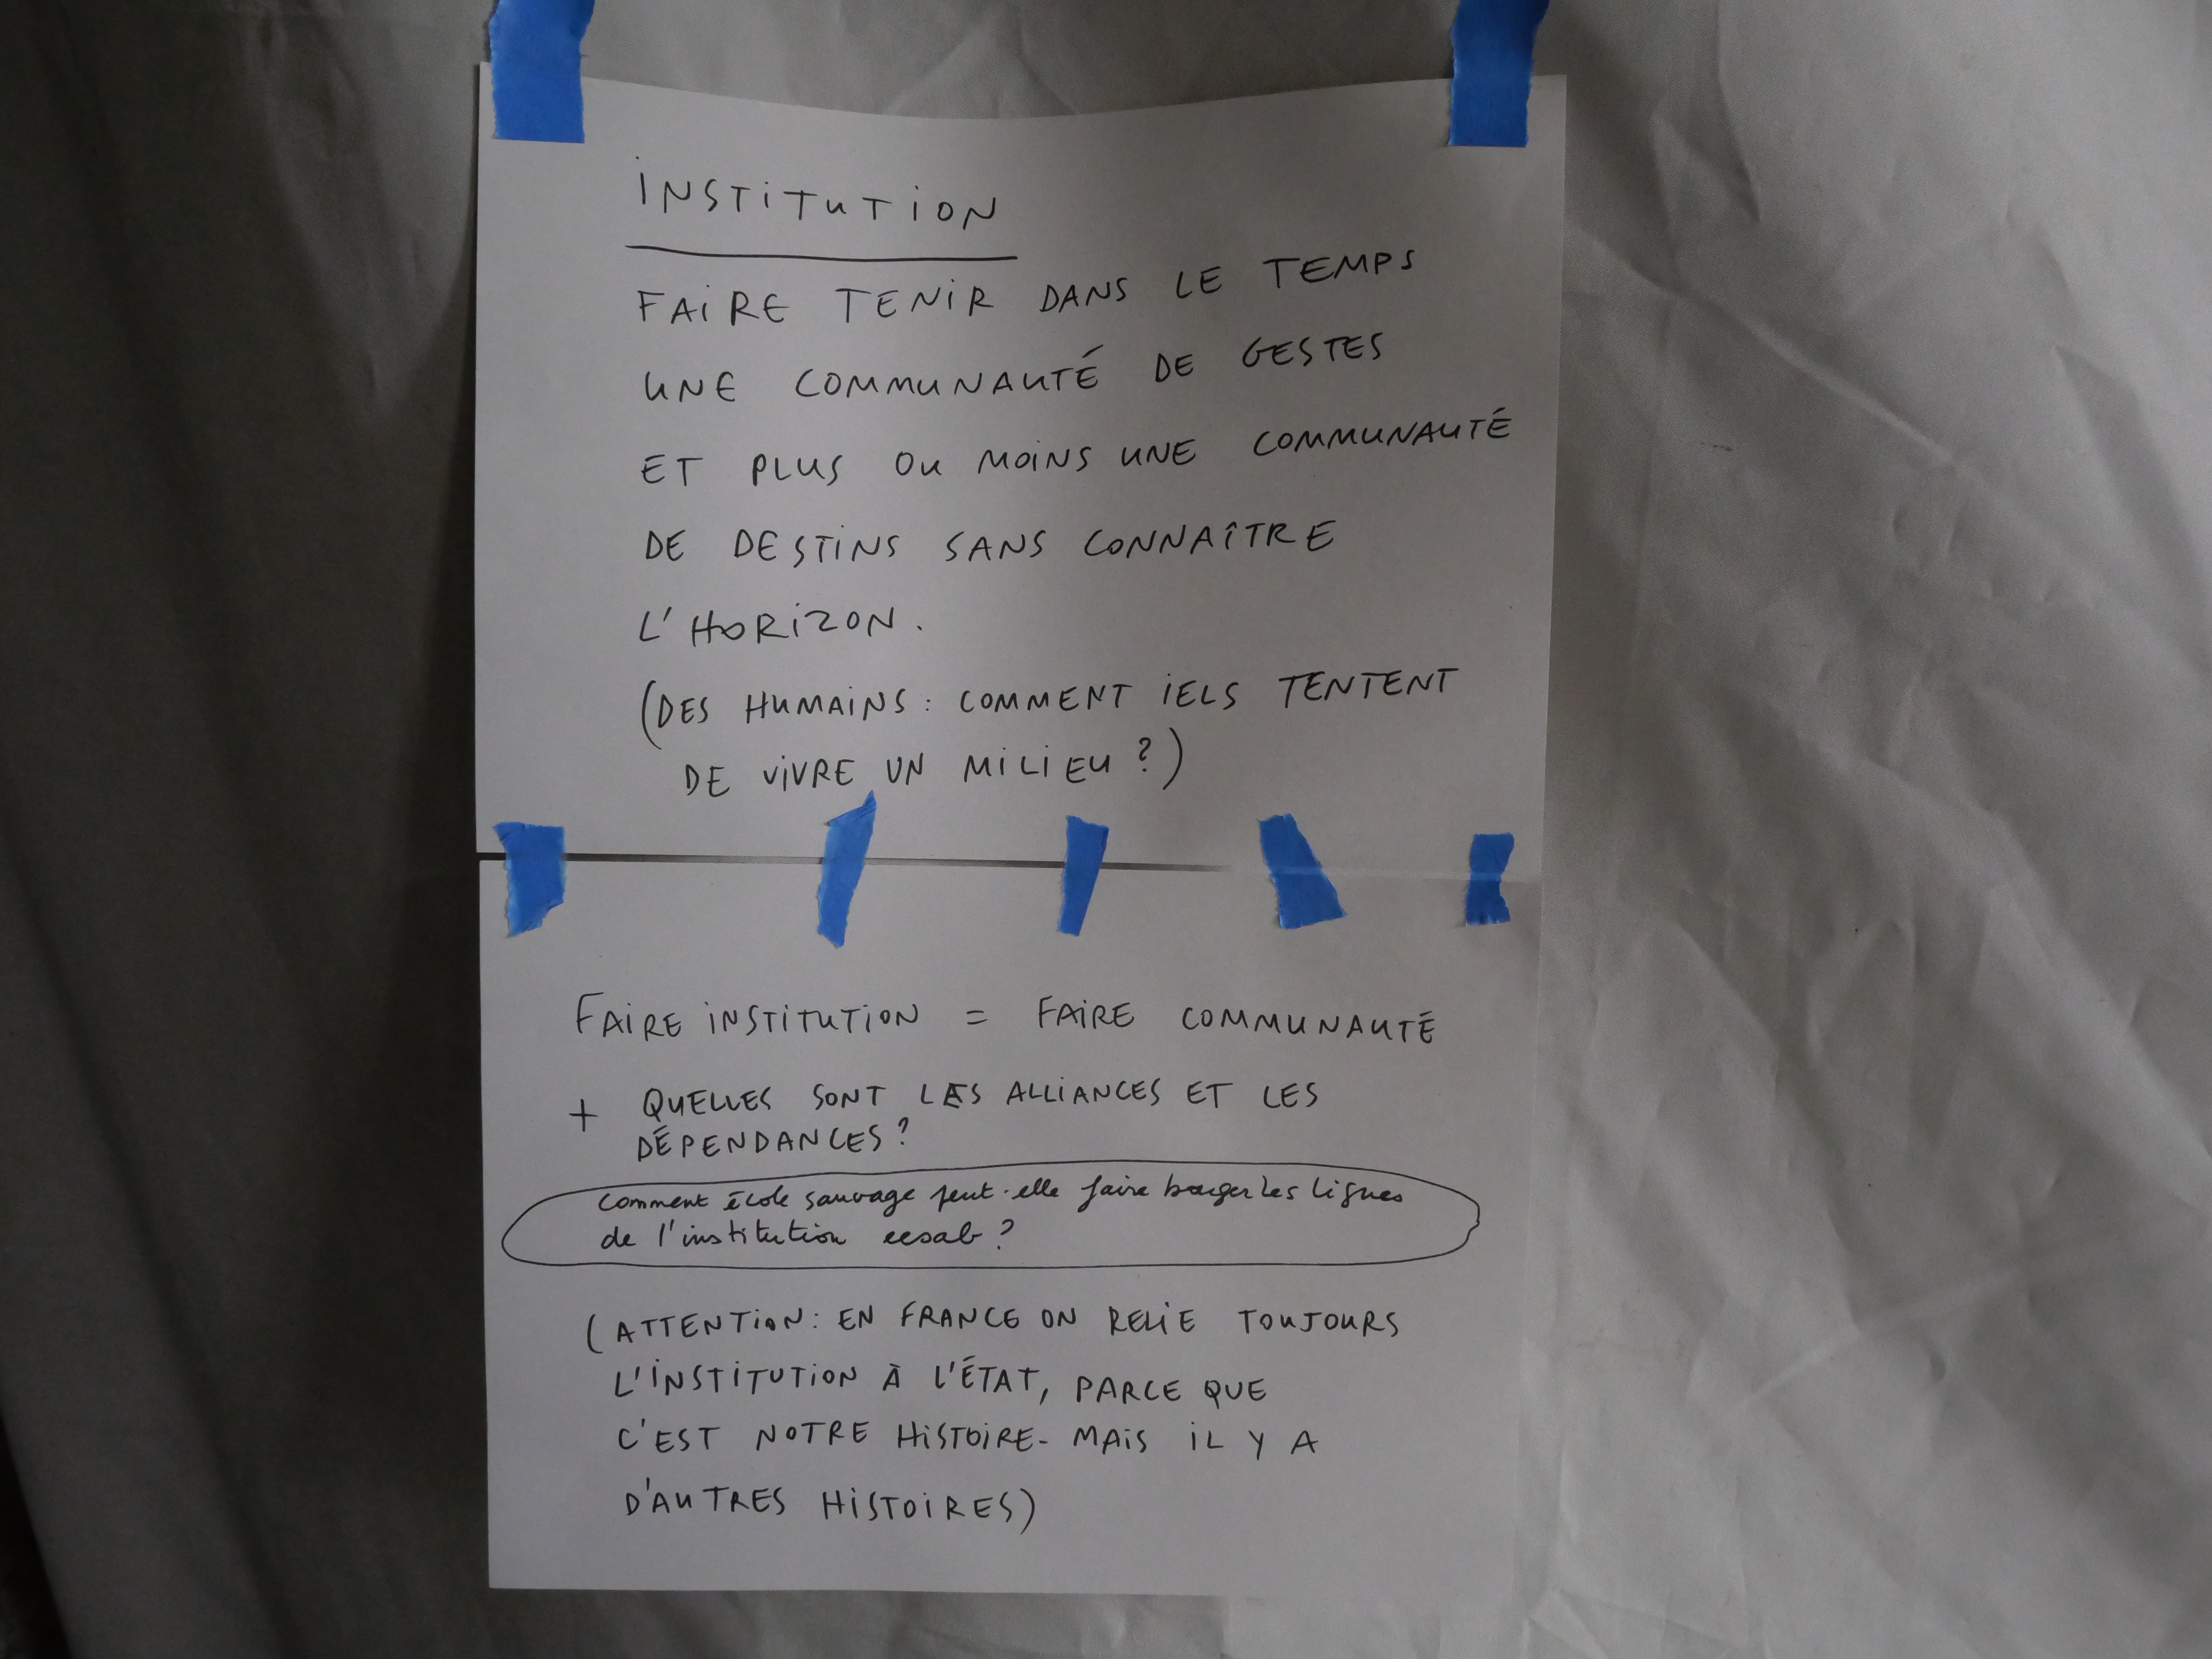 INSTITUTION
FAIRE TENIR DANS LE TEMPS
UNE COMMUNAUTÉ DE GESTES
ET PLUS OU MOINS UNE COMMUNAUTÉ
DE DESTINS SANS CONNAÎTRE
L'HORIZON.
(DES HUMAINS : COMMENT IELS TENTENT
DE VIVRE UN MILIEU ?)
FAIRE INSTITUTION = FAIRE COMMUNAUTÉ
+ QUELLES SONT LES ALLIANCES ET LES
DÉPENDANCES ?
Comment école sauvage peut-elle faire bouger les lignes
de l'institution eesab ?
(ATTENTION : EN FRANCE ON RELIE TOUJOURS
L'INSTITUTION À L'ÉTAT, PARCE QUE
C'EST NOTRE HISTOIRE - MAIS IL Y A
D'AUTRES HISTOIRES)